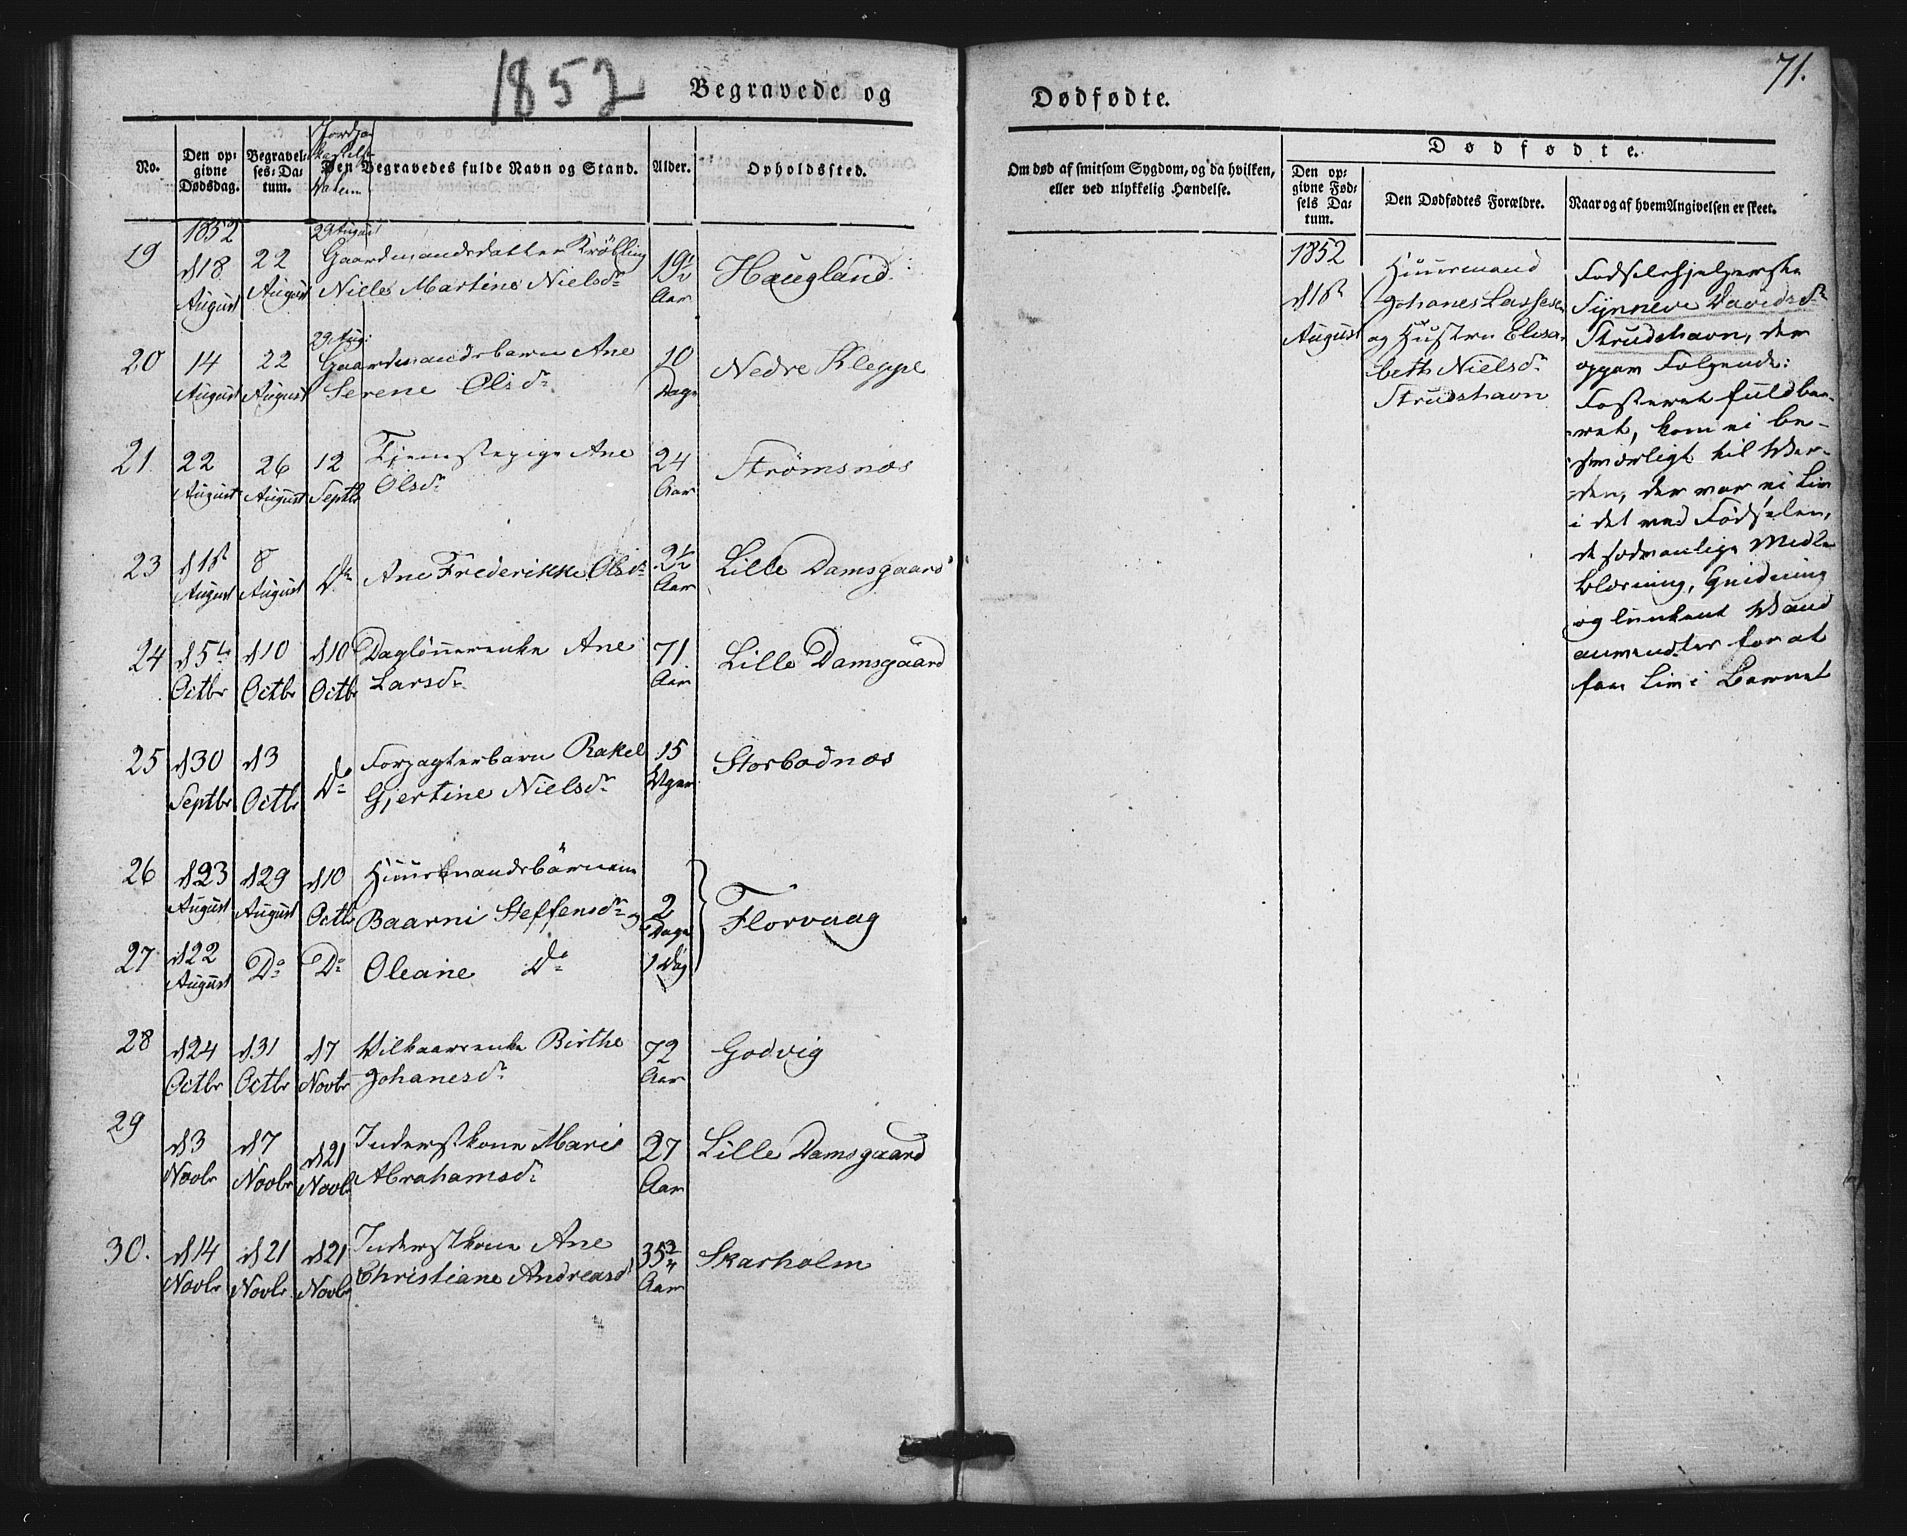 1852
Begravede og
No.
Den opgivne Dødsdag.
Begravelses-Datum.
Jordpaakastelse Datum
Den Begravedes fulde Navn og Stand.
Alder.
Opholdssted.
1852
19
d 18 August
22 August
29 August
Gaardmandsdatter Krøbling
Nille Martine Nielsdr
19½ Aar
Haugland
20
14 August
22 August
29 Aug:
Gaardmandsbarn Ane
Serene Olsdr
10 Dage
Nedre Kleppe
21
22 August
26 August
12 Septbr
Tjenestepige Ane
Olsdr
24 Aar
Strømsnæs
23
d 1st August
8 August
Do
Ane Frederikke Olsdr
2½ Aar
Lille Damsgaard
24
d 5te Octbr
d 10 Octbr
d 10 Octbr
Daglönnerenke Ane
Larsdr
71 Aar
Lille Damsgaard
25
d 30 Septbr
d 3 Octbr
Do
Forpagterbarn Rakel
Gjertine Nielsdr
15 Uger
Storbodnæs
26
d 23 August
d 29 August
d 10 Octbr
Huusmandsbörnene
Baarni Steffensdr og
2 Dage
Florvaag
27
d 22 August
Do
Do
Oleane Do
1 Dag
28
d 24 Octbr
d 31 Octbr
d 7 Novbr
Vilkaarsenke Birthe
Johanesdr
72 Aar
Godvig
29
d 3 Novbr
d 7 Novbr
d 21 Novbr
Inderstkone Marie
Abrahamsdr
27 Aar
Lille Damsgaard
30.
d 14 Novbr
d 21 Novbr
d 21 Novbr
Inderstkone Ane
Christiane Andreasdr
35 Aar
Skarholm
71.
Dødfødte.
Om død af smitsom Sygdom, og da hvilken,
eller ved ulykkelig Hændelse.
Dødfødte.
Den opgivne Fødsels Datum.
Den Dødfødtes Forældre.
Naar og af hvem Angivelsen er skeet.
1852
d 18de August
Huusmand
Johanes Lassesen
og Hustru Elisabeth Nielsdr
Strudshavn
Fødselshjelperske
Synneve Davidsdr
Strudshavn, der
opgav Følgende:
Fosteret fuldbaaret, kom ei besværligt til Verden, der var ei Liv
i det ved Födselen,
de sædvanlige Midler
Blæsning, Gnidning
og lunkent Vand
anvendtes for at
faae Liv i Barnet